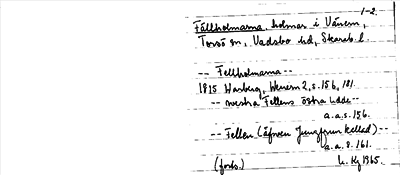 1-2.
Fällholmarna, holmar i Vänern,
Torsö sn, Vadsbo hd, Skarab. l.
-- Fellholmarna --
1815 Hasberg, Wenern 2, s. 156, 181.
-- westra Fellens östra udde --
a.a.s. 156.
-- Fellen (äfwen Jungfrun kallad) --
a.a. s. 161.
(forts.) 1965.